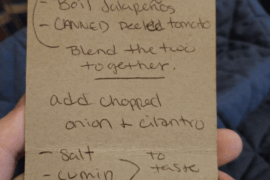 - Boil Jalapeños
- CANNED Peeled tomato
Blend the two
together.
add chopped
onion + cilantro
- Salt
- Cumin > to taste